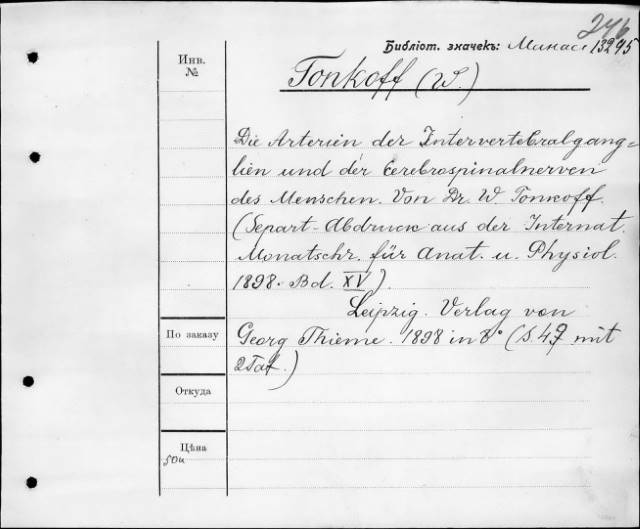 246
Библіот. значекъ: Минас 13295
Инв.
№
Tonkoff (W.)
Die Arterien der Intervertebralgang=
lien und der Cerebrospinalnerven
des Menschen. Von Dr. W. Tonkoff.
(Separt-Abdruck aus der Internat.
Monatschr. für Anat. u. Physiol.
1898. Bd. XV).
Leipzig. Verlag von
По заказу
Georg Thieme. 1898 in 8° (S. 49 mit
2 Taf.)
Откуда
Цѣна
50к